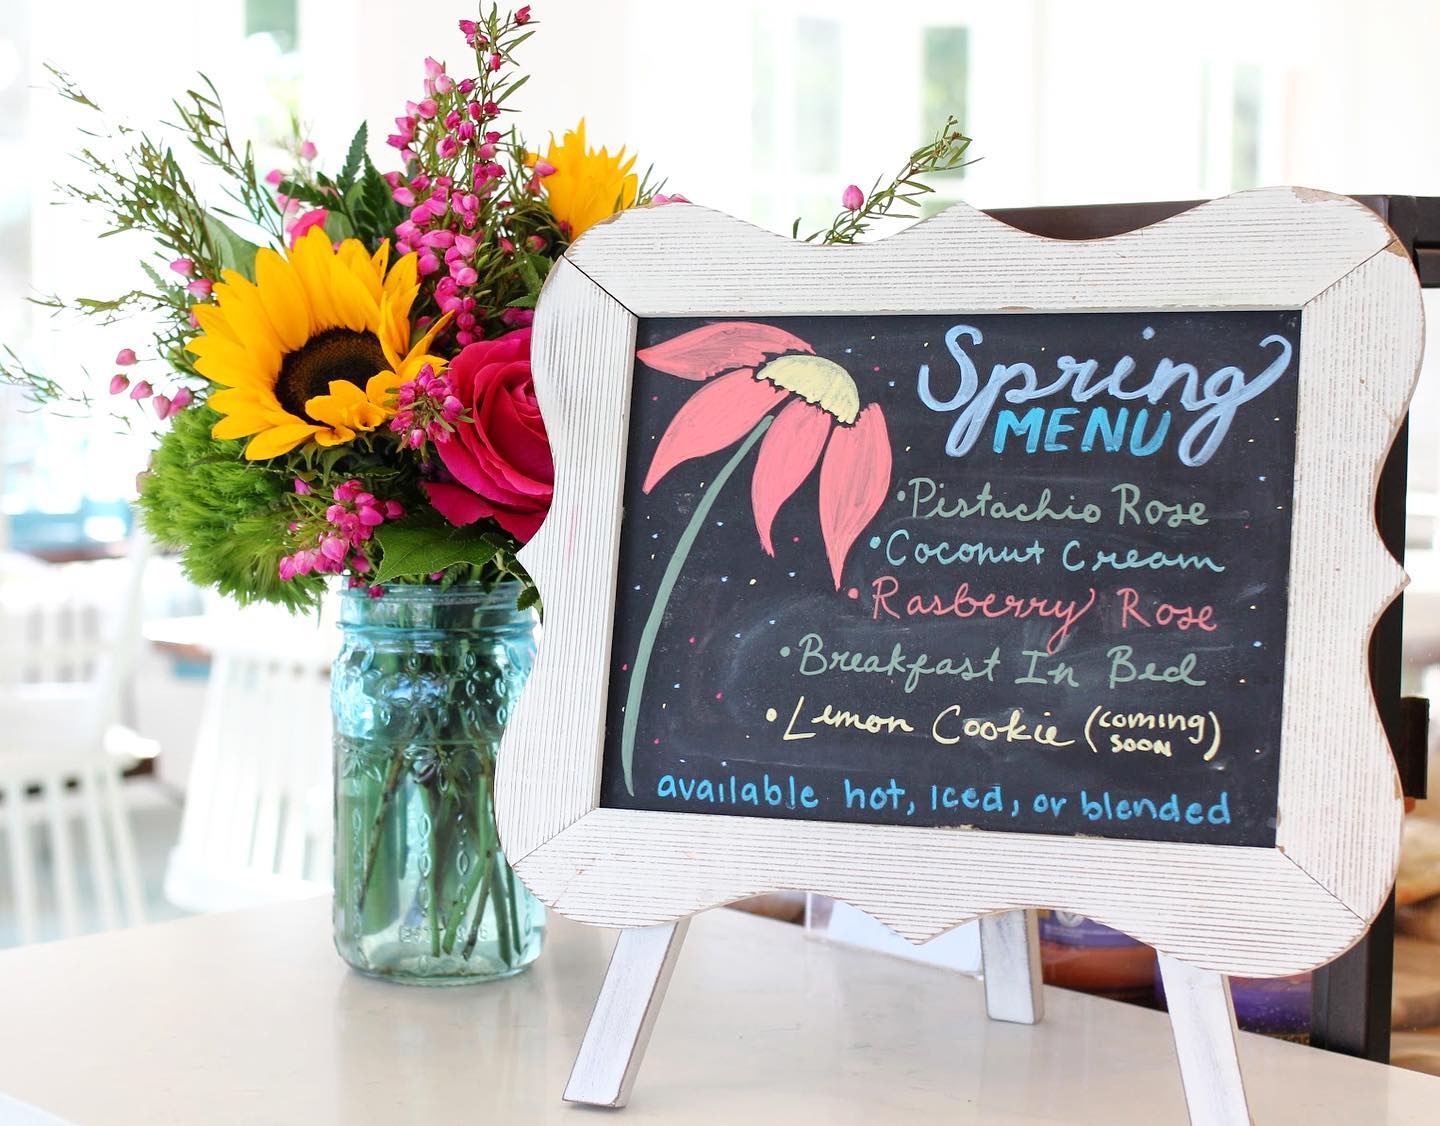 Spring
MENU
• Pistachio Rose
• Coconut Cream
• Rasberry Rose
• Breakfast In Bed
• Lemon Cookie (coming soon)
available hot, Iced, or blended